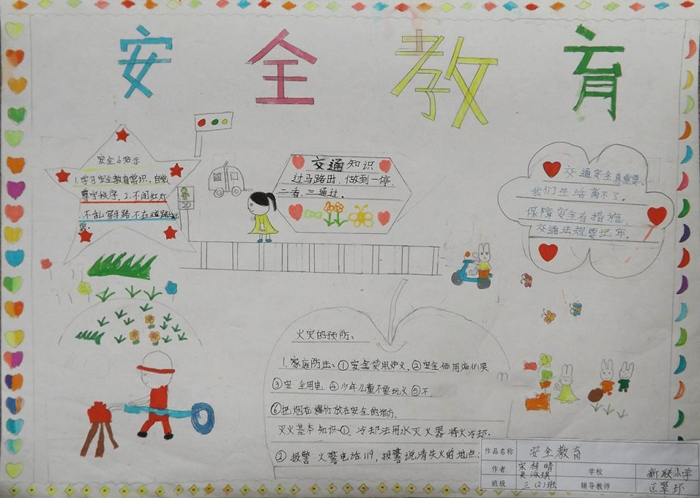 安全教育
安全小知识
1.学习安全教育常识,自觉
遵守秩序。2.不闯红灯
不乱穿马路不在道路
交通知识
过马路出,做到一停,
二看,三通过。
交通安全真重要,
我们生活离不了。
保障安全有措施,
交通法规要记牢。
火灾的预防、
1.家庭防火:①安全使用炉火,②安全使用液化
③安全用电,④少年儿童不要玩火⑤不
⑥把烟花爆竹放在安全的地方。
灭火基本知识①、冷却法用水灭火器将火冷却。
②报警火警电话119,报警说清失火的地点。
作品名称 安全教育
作者 学校 新联小学
班级 三(2)班 辅导教师